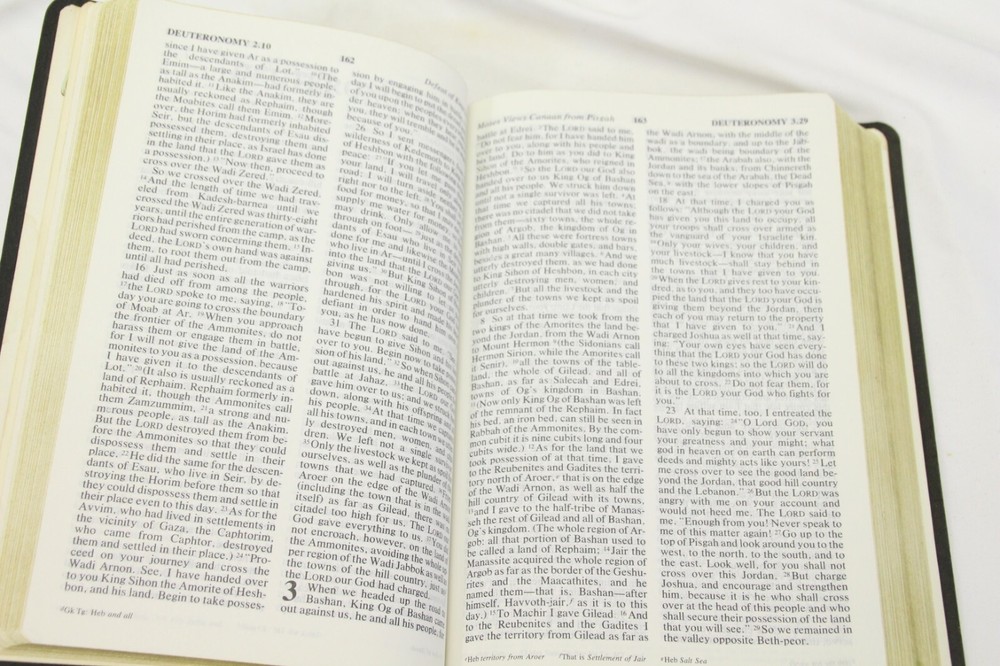 DEUTERONOMY 2.10
162
since I have given Ar as a possession to
the descendants of Lot." (The
Emim—a large and numerous people,
as tall as the Anakim—had formerly in-
habited it. 11Like the Anakim, they are
usually reckoned as Rephaim, though
the Moabites call them Emim. 12More-
over, the Horim had formerly inhabited
Seir, but the descendants of Esau dis-
possessed them, destroying them and
settling in their place, as Israel has done
in the land that the LORD gave them as
a possession.) 13"Now then, proceed to
cross over the Wadi Zered."
So we crossed over the Wadi Zered.
14And the length of time we had trav-
eled from Kadesh-barnea until we
crossed the Wadi Zered was thirty-eight
years, until the entire generation of war-
riors had perished from the camp, as the
LORD had sworn concerning them. 15In-
deed, the LORD's own hand was against
them, to root them out from the camp,
until all had perished.
16 Just as soon as all the warriors
had died off from among the people,
17the LORD spoke to me, saying, 18"To-
day you are going to cross the boundary
of Moab at Ar. 19When you approach
the frontier of the Ammonites, do not
harass them or engage them in battle,
for I will not give the land of the Am-
monites to you as a possession, because
I have given it to the descendants of
Lot." 20(It also is usually reckoned as a
land of Rephaim. Rephaim formerly in-
habited it, though the Ammonites call
them Zamzummim, 21a strong and nu-
merous people, as tall as the Anakim.
But the LORD destroyed them from be-
fore the Ammonites so that they could
dispossess them and settle in their
place. 22He did the same for the descen-
dants of Esau, who live in Seir, by de-
stroying the Horim before them so that
they could dispossess them and settle in
their place even to this day. 23As for the
Avvim, who had lived in settlements in
the vicinity of Gaza, the Caphtorim,
who came from Caphtor, destroyed
them and settled in their place.) 24"Pro-
ceed on your journey and cross the
Wadi Arnon. See, I have handed over
to you King Sihon the Amorite of Hesh-
bon, and his land. Begin to take posses-
Gk Tg: Heb and all
Defeat of
sion by engaging him in
day I will begin to put the
of you upon the peoples
der heaven; when they
you, they will tremble
because of you."
26 So I sent
wilderness of Kedemoth
of Heshbon with the
peace: 27"If you let me
your land, I will travel
road; I will turn aside
right nor to the left.
food for money, so that I
supply me water for
may drink. Only allow
through on foot—
dants of Esau who live in
done for me and likewise
who live in Ar—until I cross
into the land that the LORD
giving us." 30But King
bon was not willing to let
through, for the LORD your
hardened his spirit and made
defiant in order to hand him
you, as he has now done.
31 The LORD said to me,
have begun to give Sihon and
over to you. Begin now to take
sion of his land." So when Sihon
out against us, he and all his people
battle at Jahaz, 33the LORD our
gave him over to us; and we struck
down, along with his offspring and
his people. 34At that time we captured
all his towns, and in each town we
ly destroyed men, women, and
dren. We left not a single survivor.
35Only the livestock we kept as spoil
ourselves, as well as the plunder of
towns that we had captured. 36From
Aroer on the edge of the Wadi Arnon
(including the town that is in the
itself) as far as Gilead, there was no
citadel too high for us. The LORD our
God gave everything to us. 37You did
not encroach, however, on the land of
the Ammonites, avoiding the whole
per region of the Wadi Jabbok as well
the towns of the hill country, just as
the LORD our God had charged.
3 When we headed up the road to
Bashan, King Og of Bashan came
out against us, he and all his people, for
Moses Views Canaan from Pisgah
163
DEUTERONOMY 3.29
battle at Edrei. 2The LORD said to me,
"Do not fear him, for I have handed him
over to you, along with his people and
his land. Do to him as you did to King
Sihon of the Amorites, who reigned in
Heshbon." 3So the LORD our God also
handed over to us King Og of Bashan
and all his people. We struck him down
until not a single survivor was left. 4At
that time we captured all his towns;
there was no citadel that we did not take
from them—sixty towns, the whole re-
gion of Argob, the kingdom of Og in
Bashan. 5All these were fortress towns
with high walls, double gates, and bars,
besides a great many villages. 6And we
utterly destroyed them, as we had done
to King Sihon of Heshbon, in each city
utterly destroying men, women, and
children. 7But all the livestock and the
plunder of the towns we kept as spoil
for ourselves.
8 So at that time we took from the
two kings of the Amorites the land be-
yond the Jordan, from the Wadi Arnon
to Mount Hermon 9(the Sidonians call
Hermon Sirion, while the Amorites call
it Senir), 10all the towns of the table-
land, the whole of Gilead, and all of
Bashan, as far as Salecah and Edrei,
towns of Og's kingdom in Bashan.
11(Now only King Og of Bashan was left
of the remnant of the Rephaim. In fact
his bed, an iron bed, can still be seen in
Rabbah of the Ammonites. By the com-
mon cubit it is nine cubits long and four
cubits wide.) 12As for the land that we
took possession of at that time, I gave
to the Reubenites and Gadites the terri-
tory north of Aroer, that is on the edge
of the Wadi Arnon, as well as half the
hill country of Gilead with its towns,
13and I gave to the half-tribe of Manas-
seh the rest of Gilead and all of Bashan,
Og's kingdom. (The whole region of Ar-
gob: all that portion of Bashan used to
be called a land of Rephaim; 14Jair the
Manassite acquired the whole region of
Argob as far as the border of the Geshu-
rites and the Maacathites, and he
named them—that is, Bashan—after
himself, Havvoth-jair, as it is to this
day.) 15To Machir I gave Gilead. 16And
to the Reubenites and the Gadites I
gave the territory from Gilead as far as
the Wadi Arnon, with the middle of the
wadi as a boundary, and up to the Jab-
bok, the wadi being boundary of the
Ammonites; 17the Arabah also, with the
Jordan and its banks, from Chinnereth
down to the sea of the Arabah, the Dead
Sea, with the lower slopes of Pisgah
on the east.
18 At that time, I charged you as
follows: "Although the LORD your God
has given you this land to occupy, all
your troops shall cross over armed as
the vanguard of your Israelite kin.
19Only your wives, your children, and
your livestock—I know that you have
much livestock—shall stay behind in
the towns that I have given to you.
20When the LORD gives rest to your kin-
dred, as to you, and they too have occu-
pied the land that the LORD your God is
giving them beyond the Jordan, then
each of you may return to the property
that I have given to you." 21And I
charged Joshua as well at that time, say-
ing: "Your own eyes have seen every-
thing that the LORD your God has done
to these two kings; so the LORD will do
to all the kingdoms into which you are
about to cross. 22Do not fear them, for
it is the LORD your God who fights for
you."
23 At that time, too, I entreated the
LORD, saying: 24"O Lord GOD, you
have only begun to show your servant
your greatness and your might; what
god in heaven or on earth can perform
deeds and mighty acts like yours! 25Let
me cross over to see the good land be-
yond the Jordan, that good hill country
and the Lebanon." 26But the LORD was
angry with me on your account and
would not heed me. The LORD said to
me, "Enough from you! Never speak to
me of this matter again! 27Go up to the
top of Pisgah and look around you to the
west, to the north, to the south, and to
the east. Look well, for you shall not
cross over this Jordan. 28But charge
Joshua, and encourage and strengthen
him, because it is he who shall cross
over at the head of this people and who
shall secure their possession of the land
that you will see." 29So we remained in
the valley opposite Beth-peor.
Heb territory from Aroer That is Settlement of Jair Heb Salt Sea